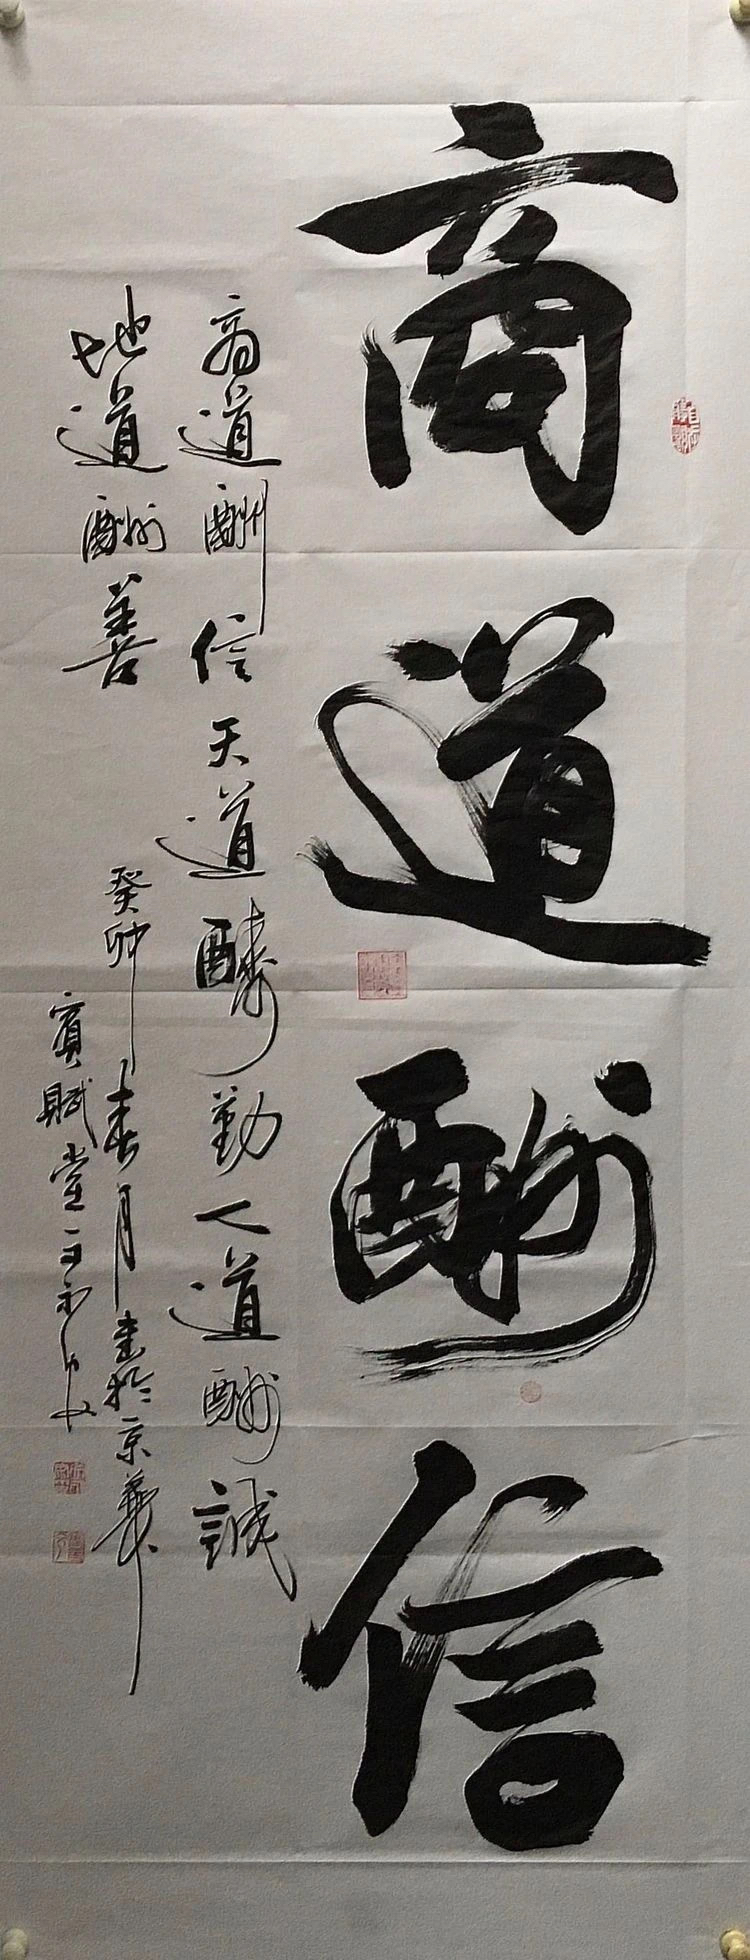 商道酬信
商道酬信天道酬勤人道酬誠
地道酬善
癸卯春月書於京華
賓賦堂